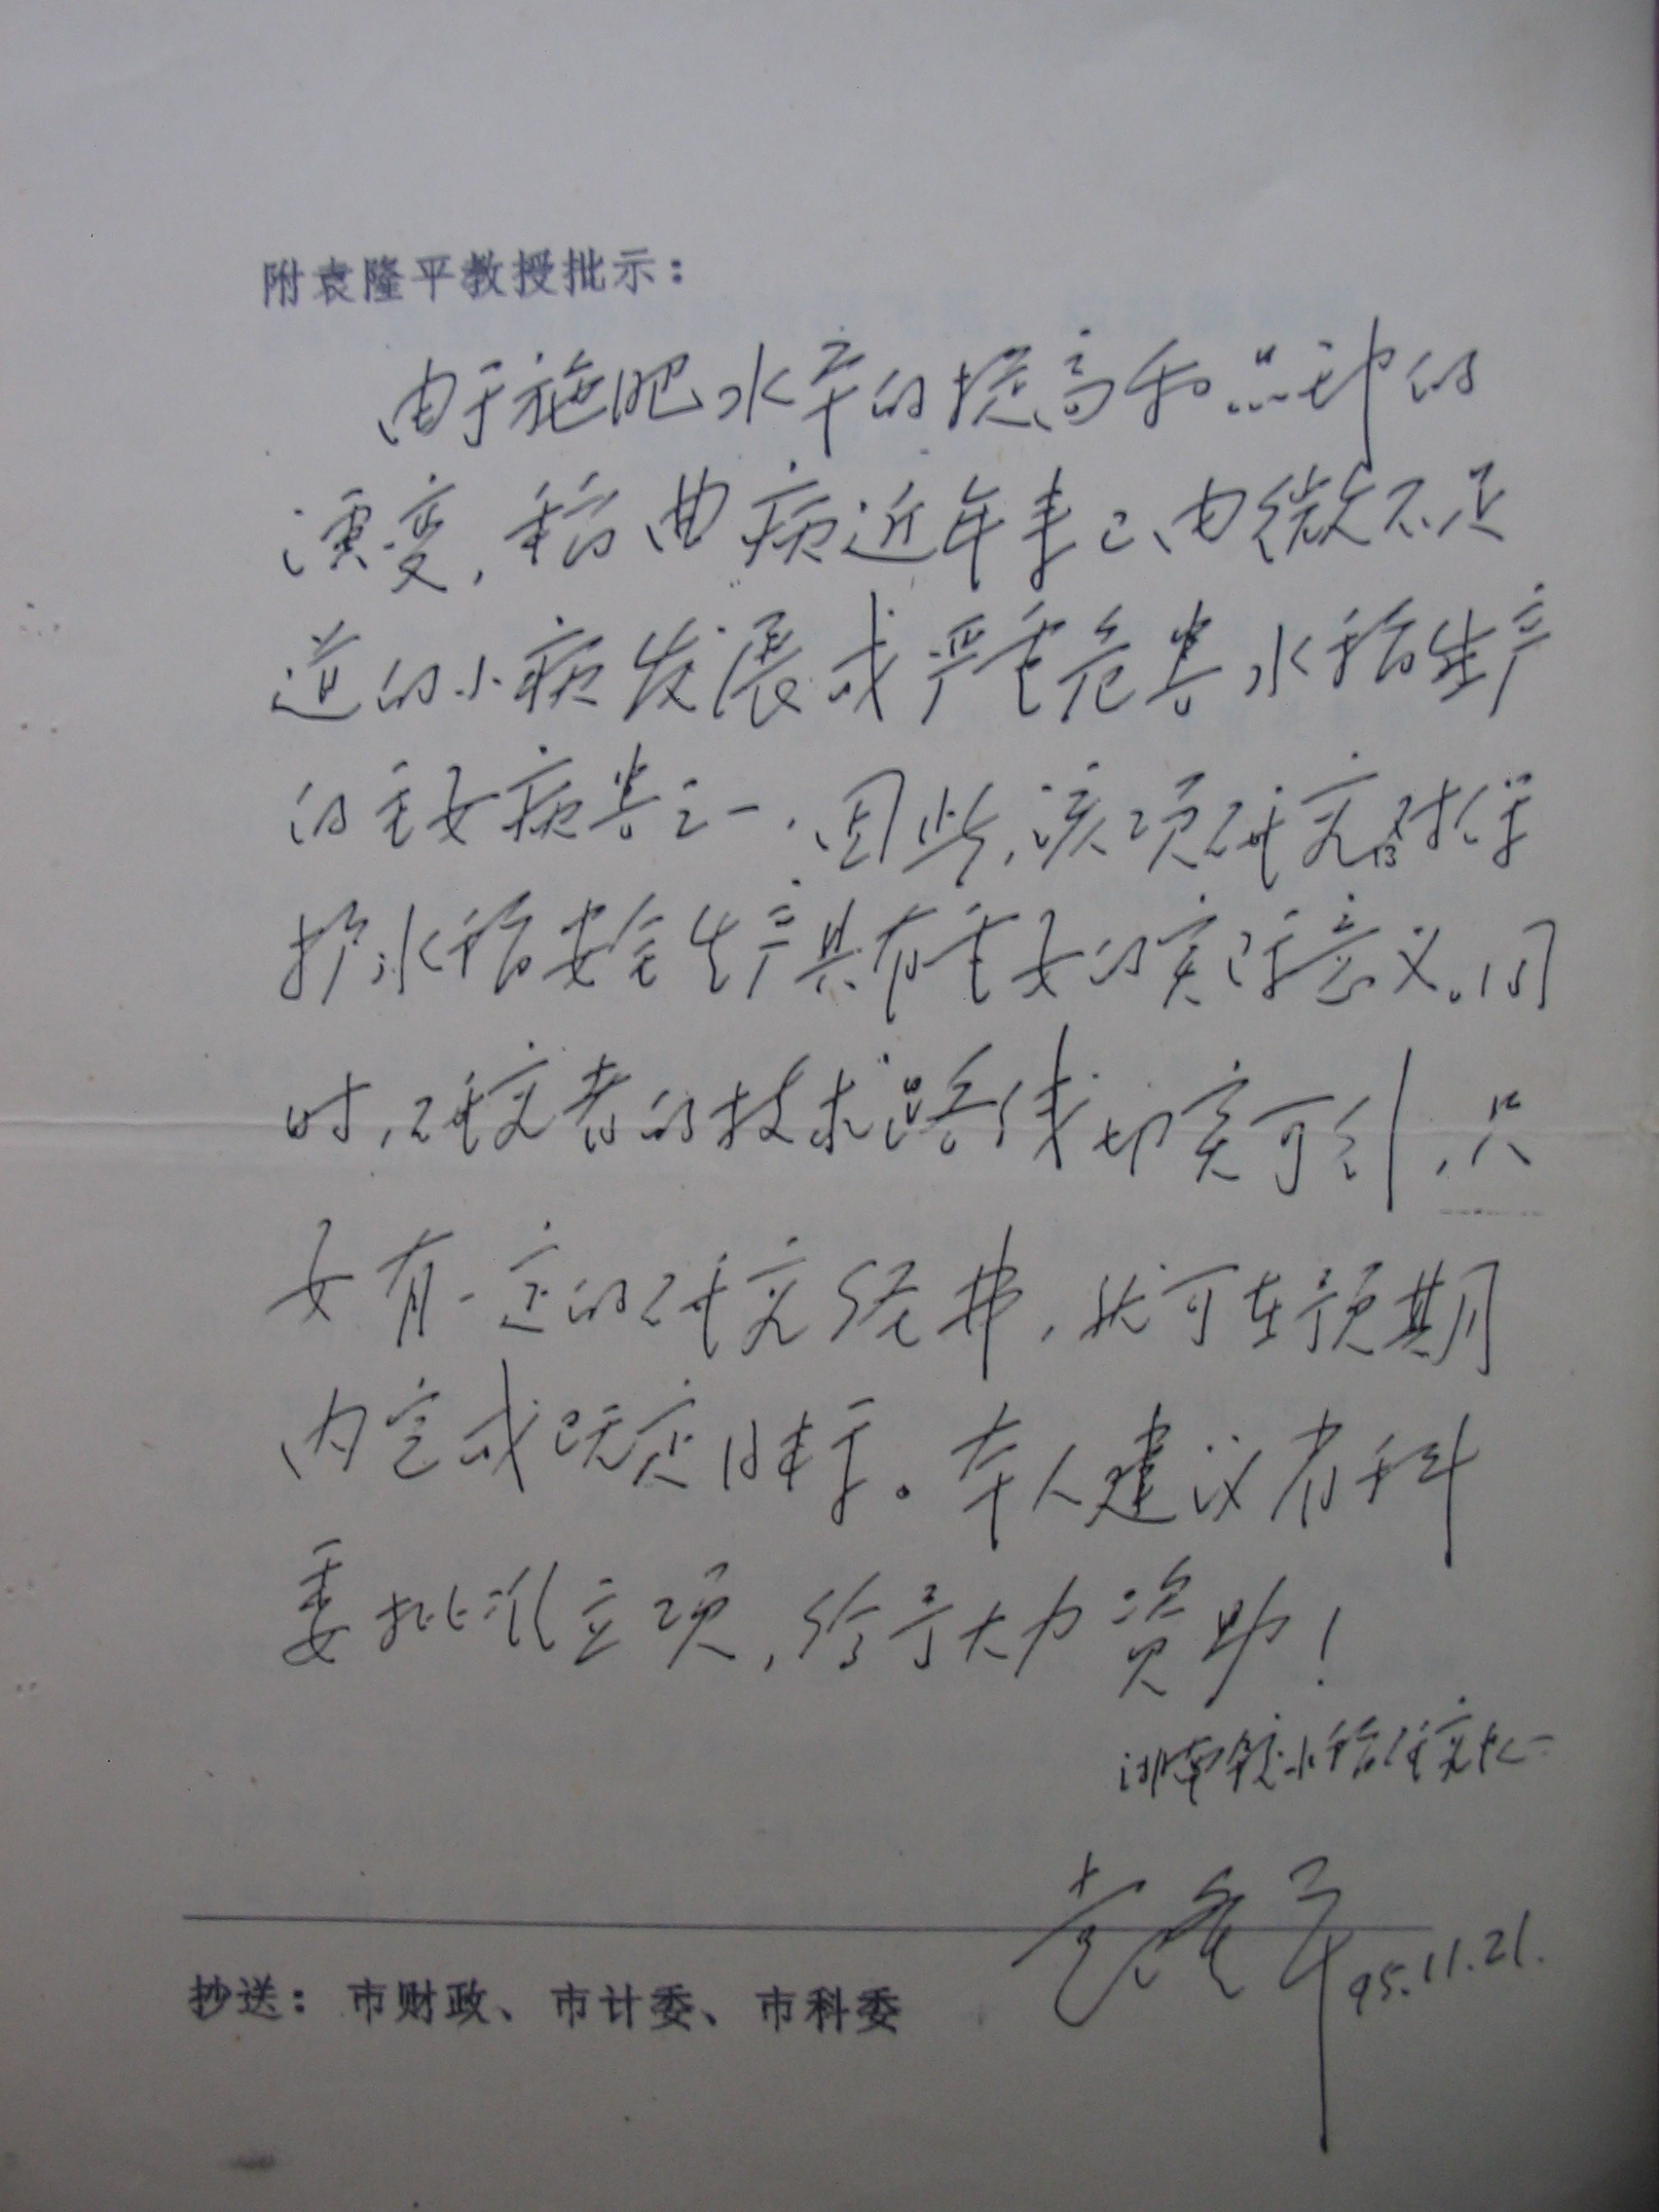 附袁隆平教授批示：
由于施肥水平的提高和品种的
演变，稻曲病近年来已由微不足
道的小病发展成严重危害水稻生产
的主要病害之一．因此，该项研究对保
护水稻安全生产具有重要的实际意义。同
时，研究者的技术路线切实可行，只
要有一定的研究经费，就可在预期
内完成既定目标。本人建议省科
委批准立项，给予大力资助！
湖南杂交水稻研究中心
袁隆平
95.11.21.
抄送：市财政、市计委、市科委